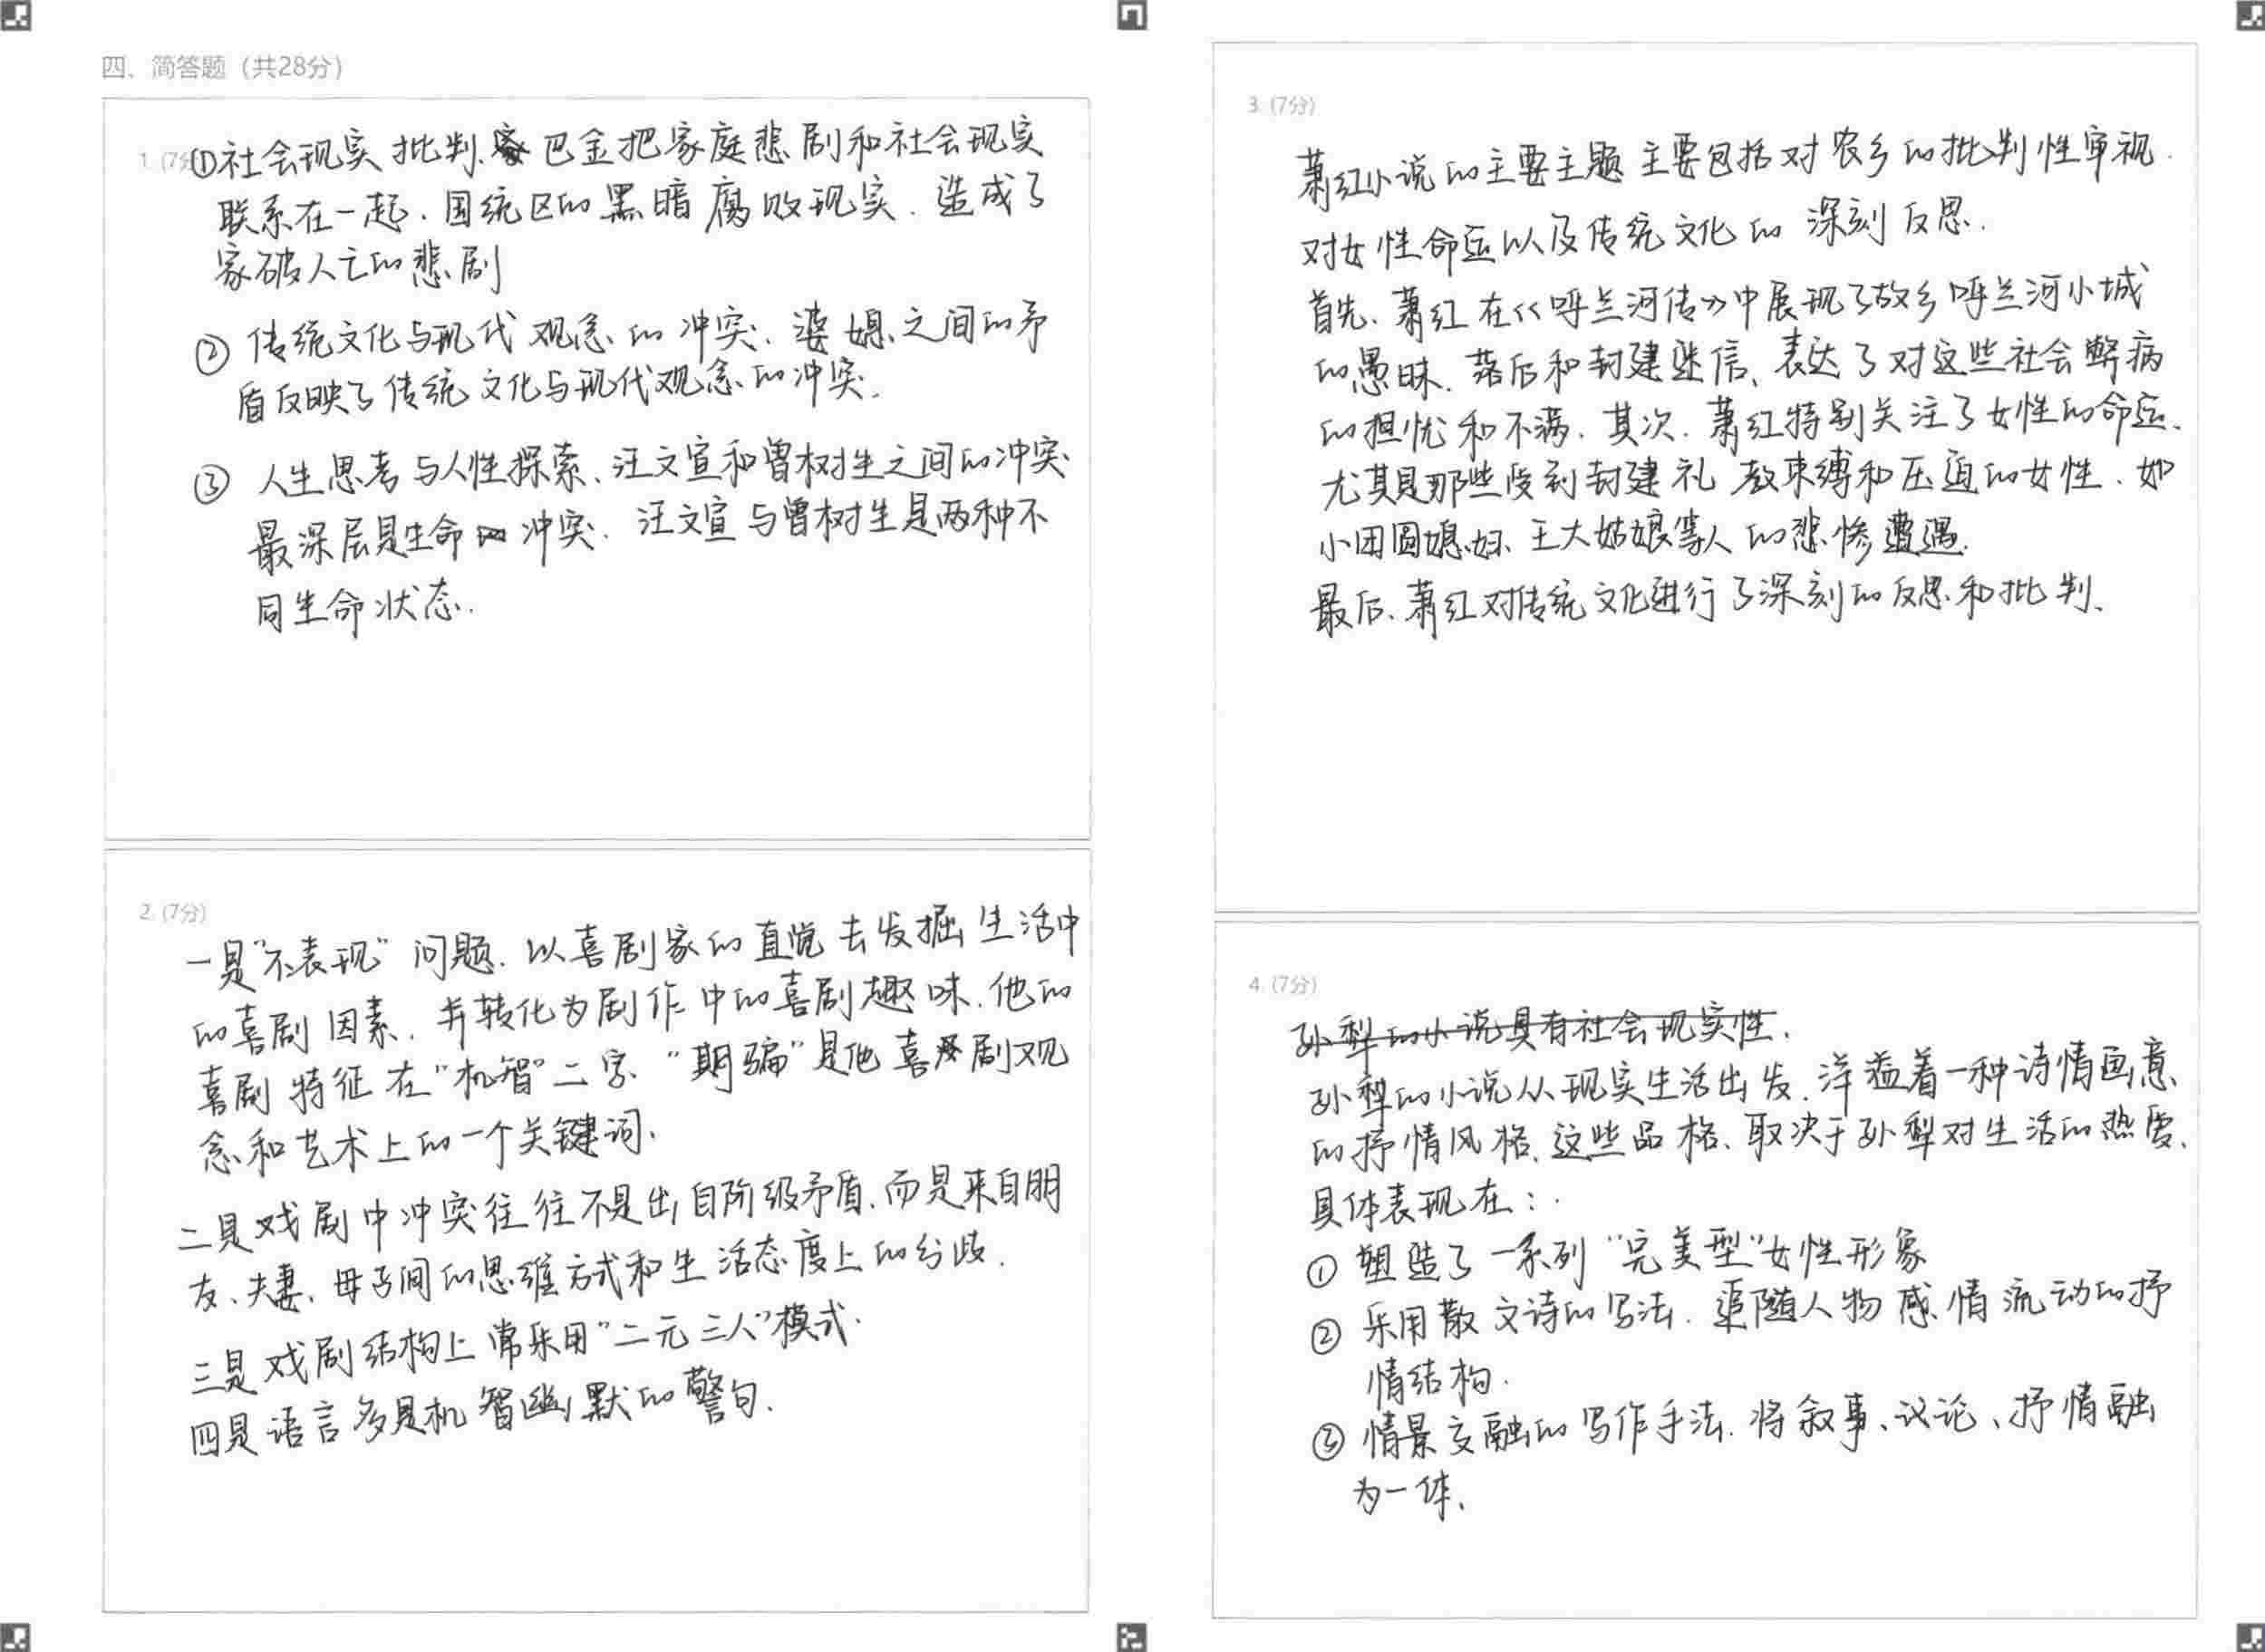 四、简答题（共28分）
1. (7分
①社会现实批判、巴金把家庭悲剧和社会现实
联系在一起、国统区的黑暗腐败现实、造成了
家破人亡的悲剧
② 传统文化与现代观念的冲突、婆媳之间的矛
盾反映了传统文化与现代观念的冲突。
③ 人生思考与人性探索、汪文宣和曾树生之间的冲突
最深层是生命冲突、汪文宣与曾树生是两种不
同生命状态.
2. (7分)
一是“不表现”问题、以喜剧家的直觉去发掘生活中
的喜剧因素、并转化为剧作中的喜剧趣味、他的
喜剧特征在“机智”二字、“期骗”是他喜剧观
念和艺术上的一个关键词、
二是戏剧中冲突往往不是出自阶级矛盾、而是来自朋
友、夫妻、母子间的思维方式和生活态度上的分歧.
三是戏剧结构上常采用“二元三人”模式.
四是语言多是机智幽默的警句、
3. (7分)
萧红小说的主要主题主要包括对农乡的批判性审视、
对女性命运以及传统文化的深刻反思.
首先、萧红在《呼兰河传》中展现了故乡呼兰河小城
的愚昧、落后和封建迷信、表达了对这些社会弊病
的担忧和不满、其次、萧红特别关注了女性的命运、
尤其是那些受到封建礼教束缚和压迫的女性、如
小团圆媳妇、王大姑娘等人的悲惨遭遇.
最后、萧红对传统文化进行了深刻的反思和批判、
4. (7分)
孙犁的小说具有社会现实性.
孙犁的小说从现实生活出发、洋溢着一种诗情画意
的抒情风格、这些品格、取决于孙犁对生活的热爱、
具体表现在：
① 塑造了一系列“完美型”女性形象
② 采用散文诗的写法、追随人物感情流动的抒
情结构.
③ 情景交融的写作手法、将叙事、议论、抒情融
为一体、